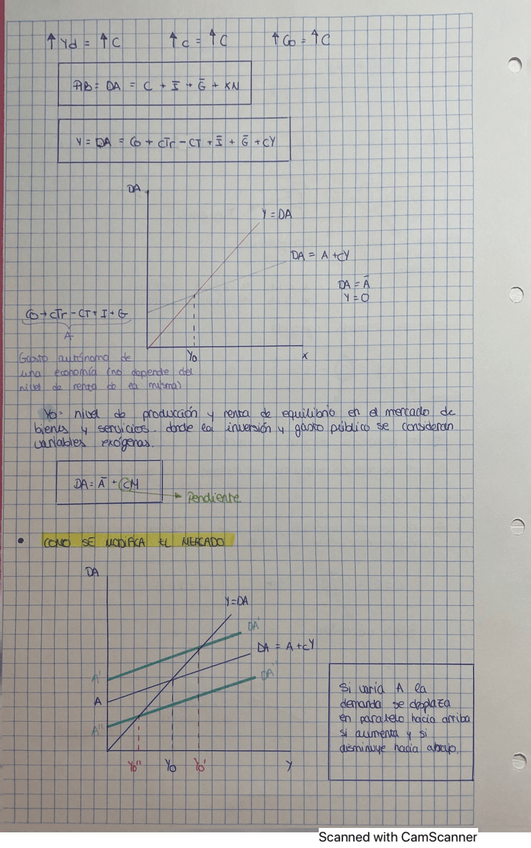 ↑Yd = ↑C ↑c = ↑C ↑Co = ↑C
PIB = DA = C + Ī + Ḡ + XN
Y = DA = Co + cTr - CT + Ī + Ḡ + cY
DA
Y = DA
DA = A + cY
DA = Ā
Y = 0
Co + cTr - CT + I + G
A
Yo
X
Gasto autónomo de
una economía (no depende del
nivel de renta de la misma)
Yo- nivel de producción y renta de equilibrio en el mercado de
bienes y servicios. donde la inversión y gasto público se consideran
variables exógenas.
DA = Ā +
Pendiente
• COMO SE MODIFICA EL MERCADO
DA
Y=DA
DA'
DA = A + cY
DA''
A'
A
A''
Yo'' Yo Yo' Y
Si varia A la
demanda se desplaza
en paralelo hacia arriba
si aumenta y si
disminuye hacia abajo.
Scanned with CamScanner